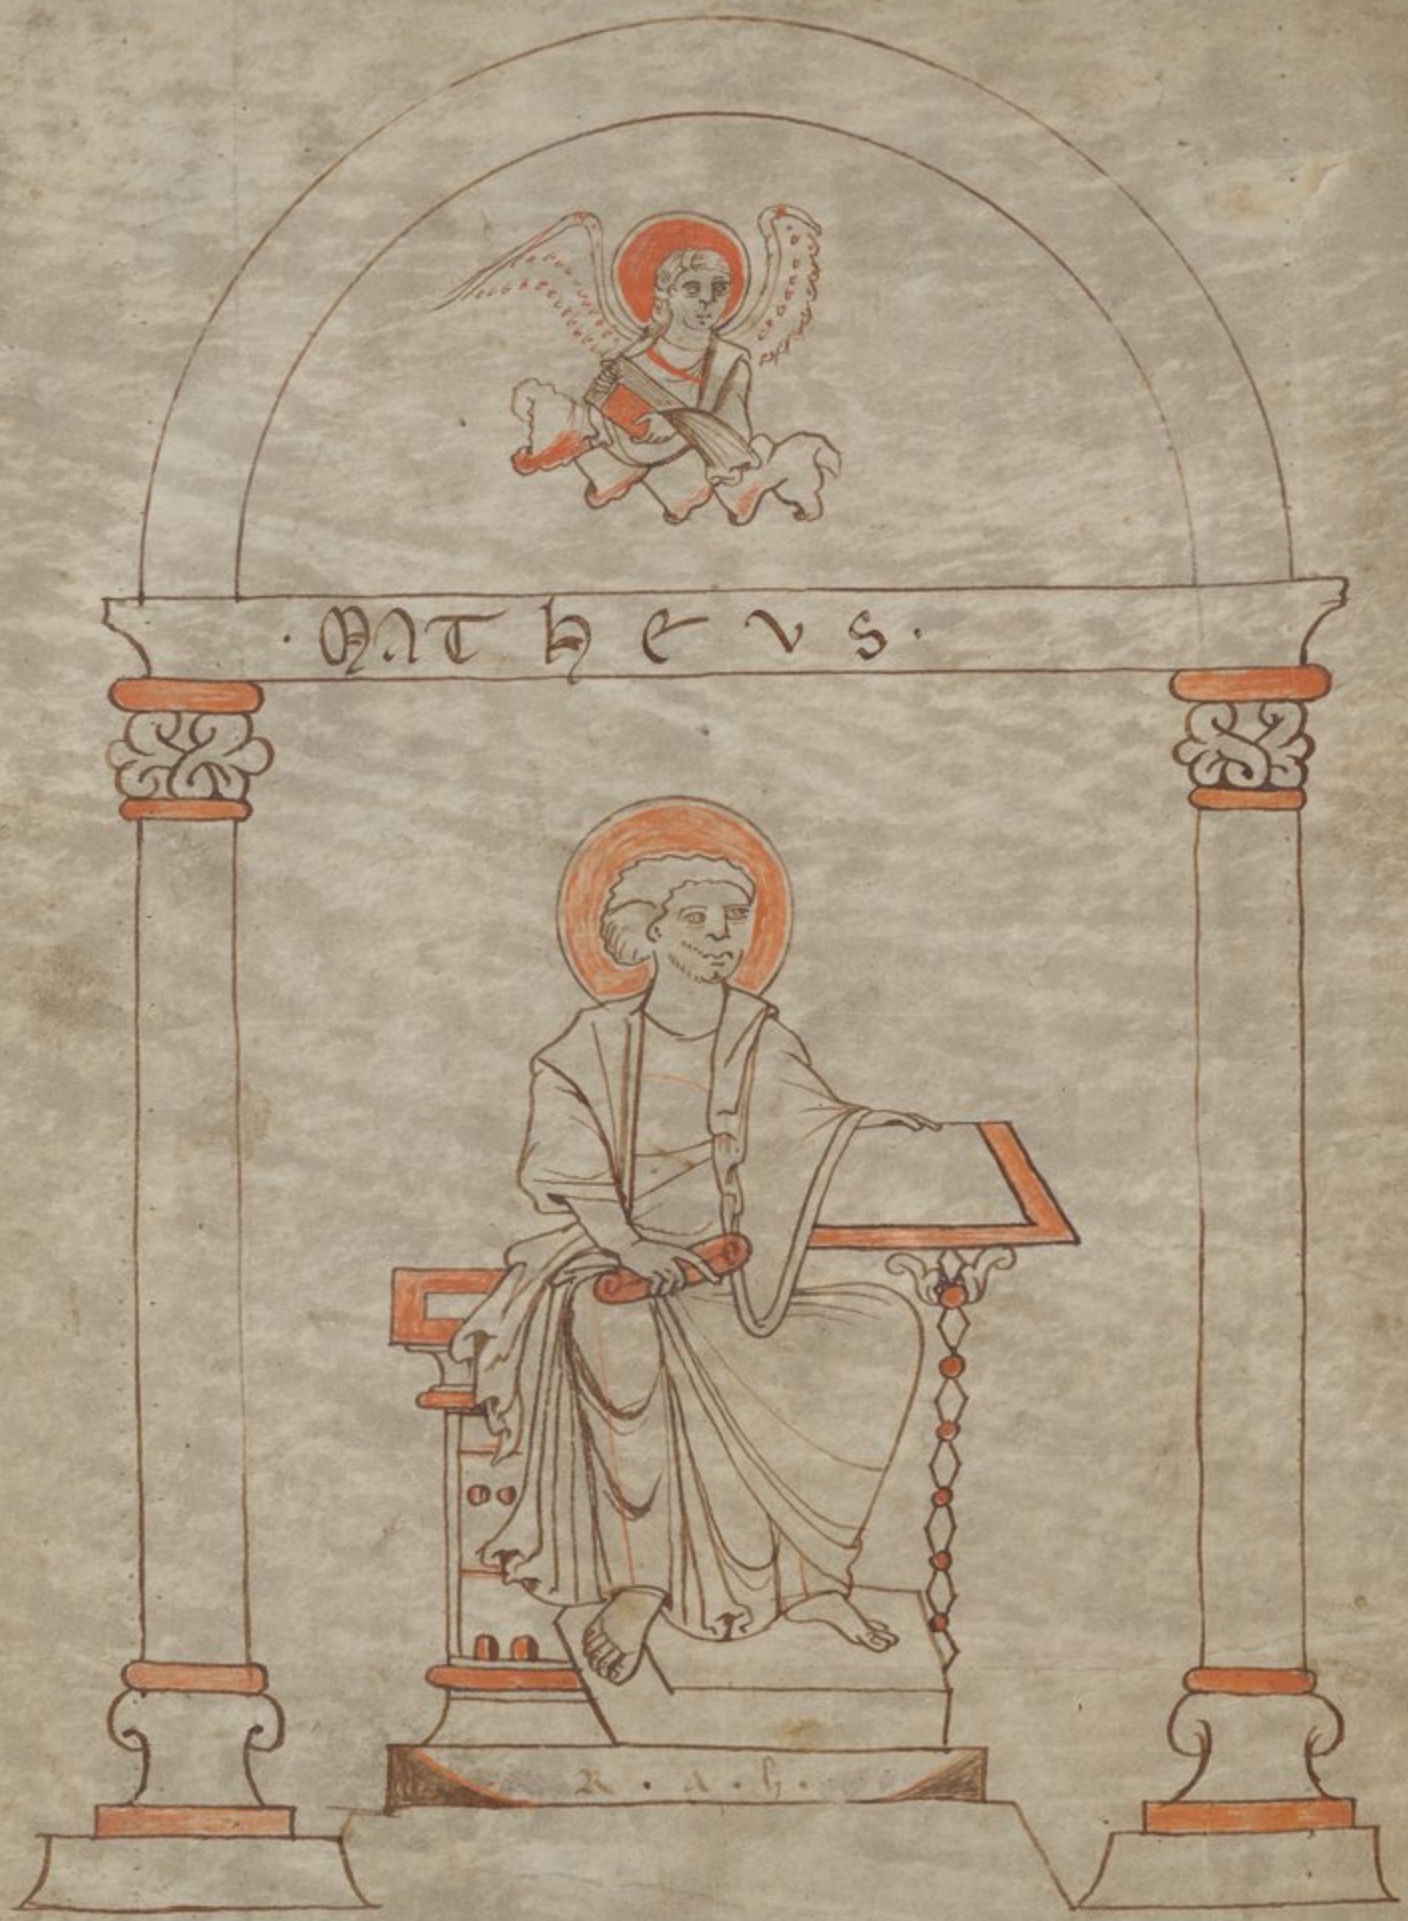 · MATHEUS ·
R · A · h ·